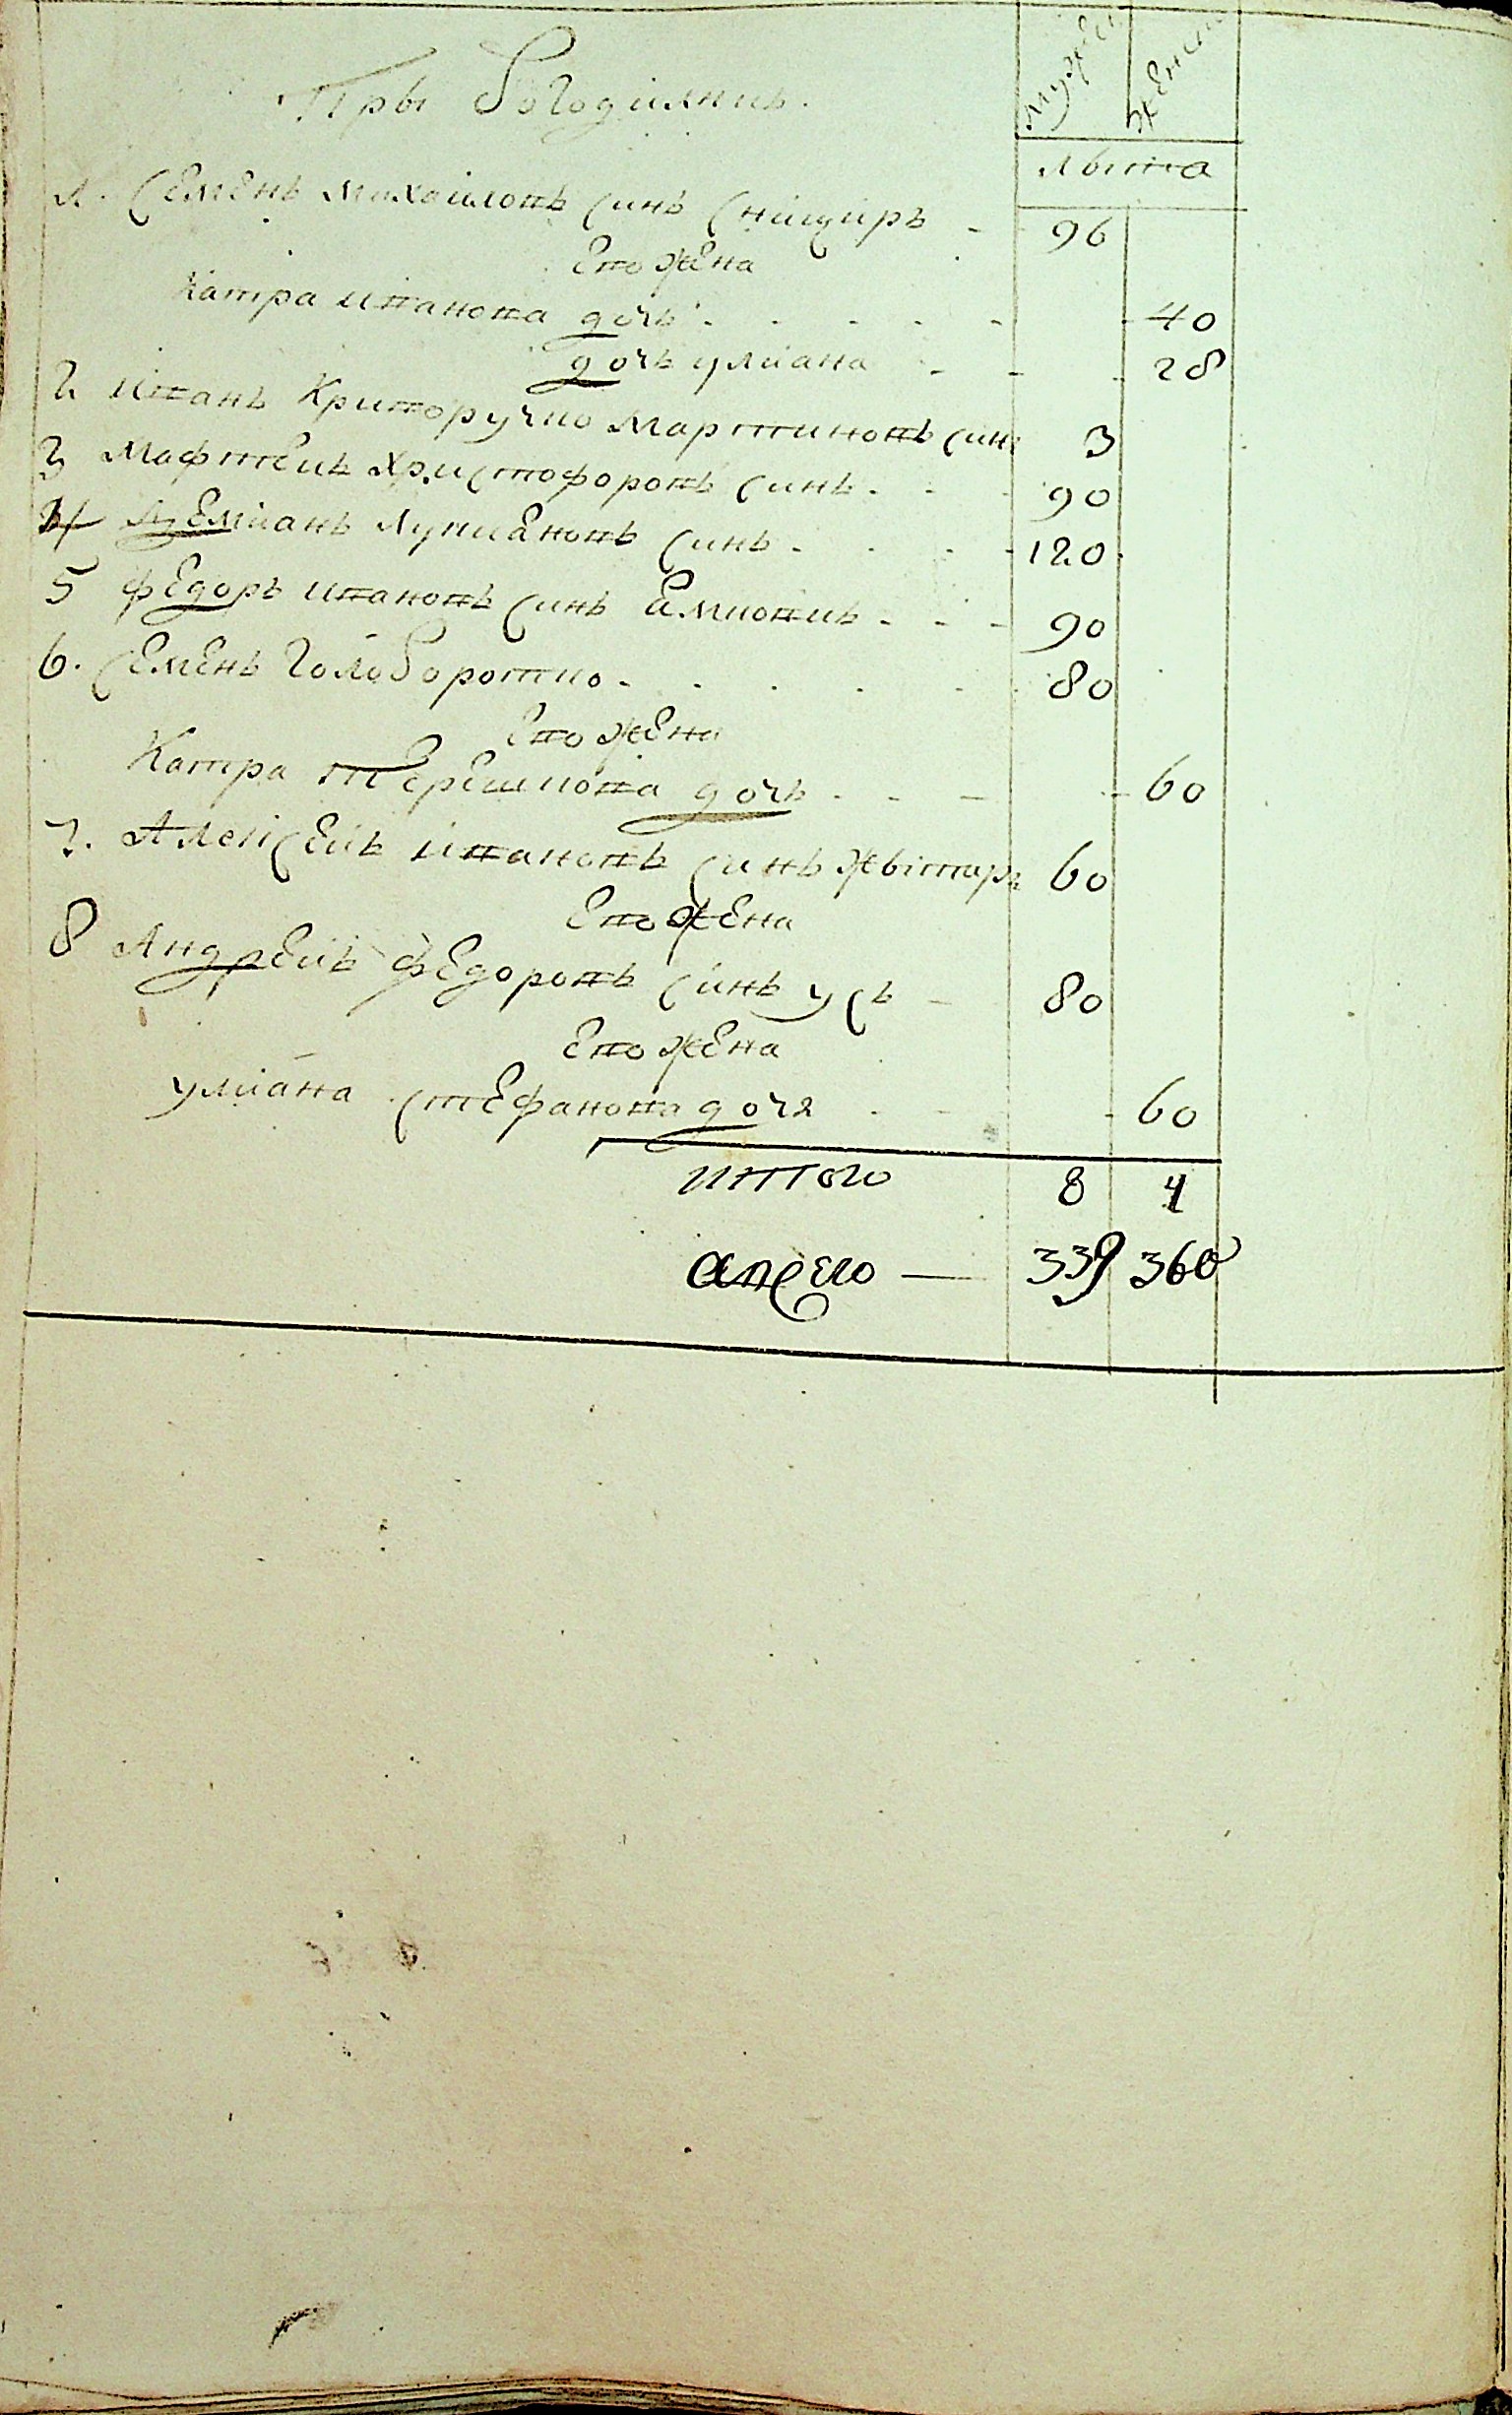 При Богоділнѣ.
мужеск женск
лѣта
1. Семенъ Михаиловъ синъ Снѣциръ - 96
Его жена
Катра иванова дочь - 40
дочь улияна - 28
2 иванъ Криворучко Мартиновъ синъ 3
3 Мафтеий Христофоровъ синъ 90
4 Демиянъ Лукияновъ синъ 120
5 федоръ ивановъ синъ 90
6. Семенъ Голоборотко 80
Его жена
Катра Терешкова дочь 60
7. Алексеий ивановъ синъ 60
Его жена
8 Андреий федоровъ синъ усъ 80
Его жена
улияна стефанова дочь 60
итого 8 4
а всего — 339 360